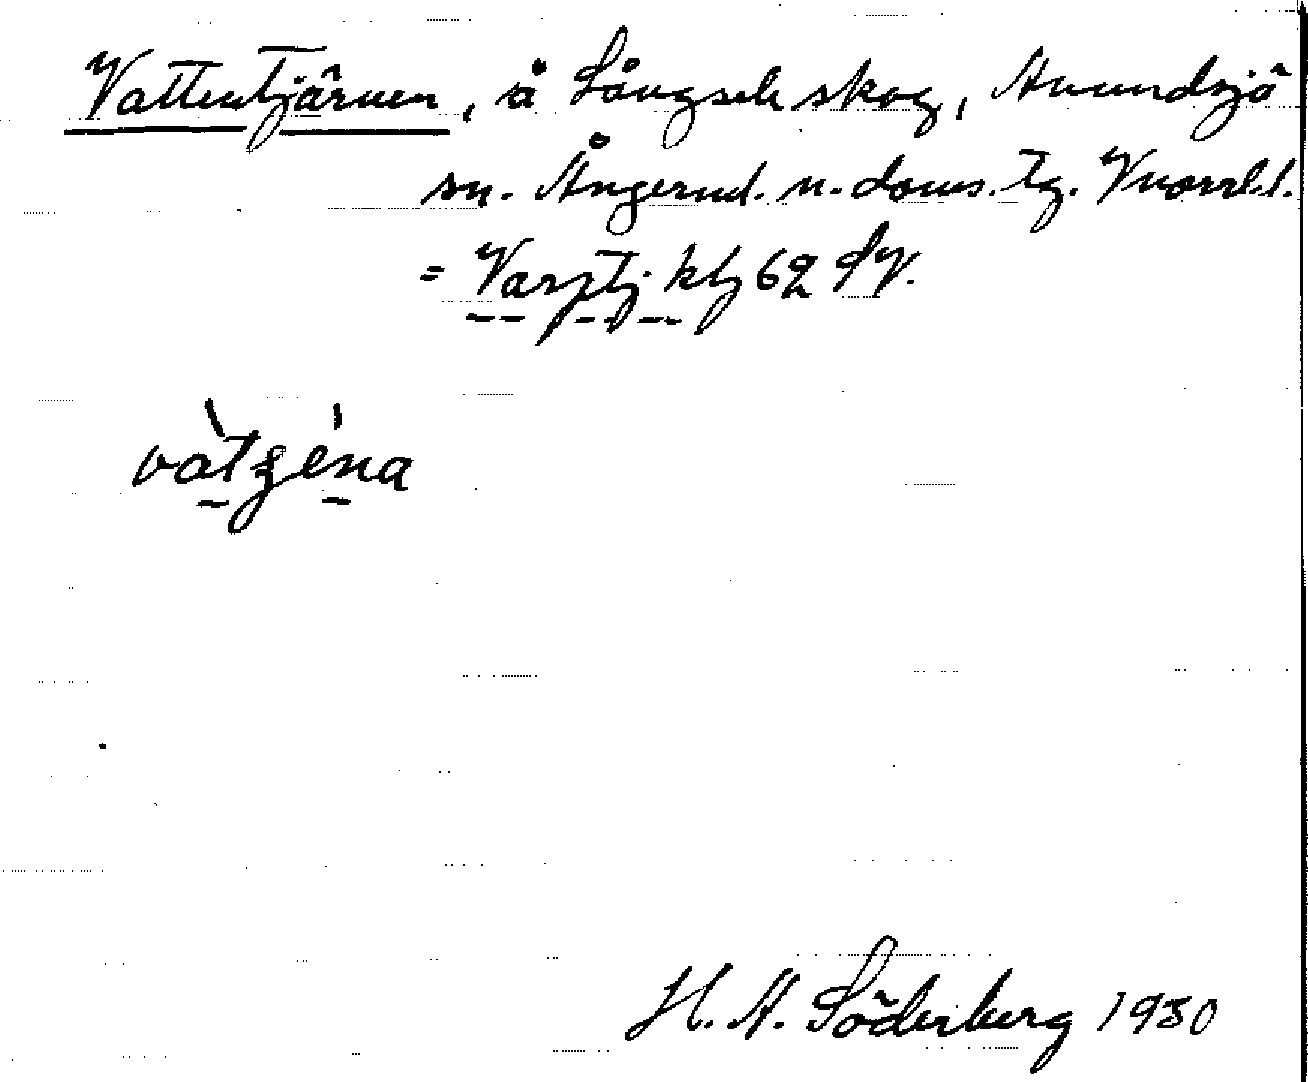 Vattentjärnen, å Långsele skog, Anundsjö
sn. Ångerml. n. doms. tg. Vnorrl. l.
= Varptj. kbj 62 SV.
vàtʒéna
H. A. Söderberg 1930